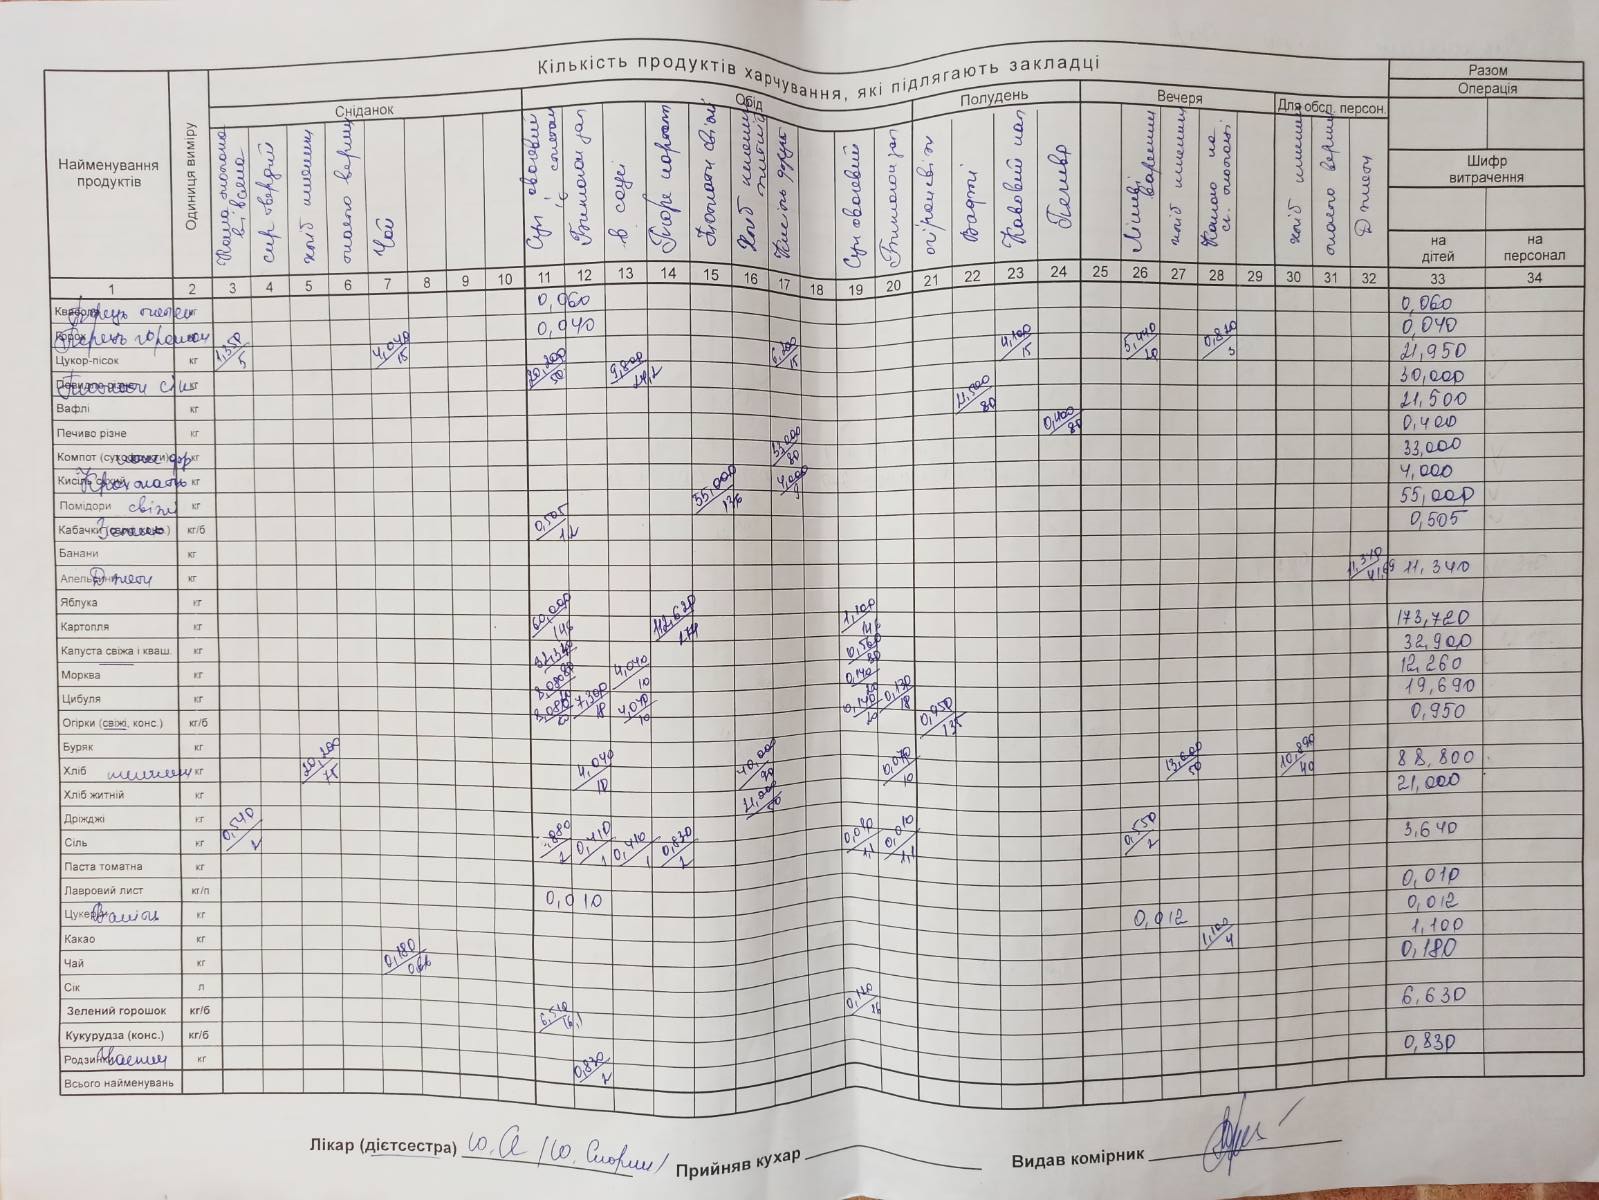 Кількість продуктів харчування, які підлягають закладці
Разом
Операція
Сніданок
Обід
Полудень
Вечеря
Для обсл. персон.
Найменування продуктів
Одиниця виміру
сир твердий
масло вершк
Чай
Суп овочевий
в соусі
Пюре
свіжі
Суп овочевий
Вафлі
Кавовий нап
Печиво
Какао на
масло верш
Джем
Шифр витрачення
на дітей
на персонал
1 2 3 4 5 6 7 8 9 10 11 12 13 14 15 16 17 18 19 20 21 22 23 24 25 26 27 28 29 30 31 32 33 34
Перець кг 0,060 0,060
Перець горошком 0,040 0,040
Цукор-пісок кг 1,350/5 4,040/15 6,200/15 4,100/15 5,440/20 0,820/3 21,950
сік кг 20,200/50 9,800/24,2 30,000
Вафлі кг 21,500/80 21,500
Печиво різне кг 0,400/80 0,400
Компот (сухофрукти) кг 33,000/80 33,000
Крохмаль кг 4,000/9 4,000
Помідори свіжі кг 55,000/136 55,000
Кабачки кг/б 0,505/1,2 0,505
Банани кг
Джем кг 11,340/41,69 11,340
Яблука кг
Картопля кг 60,000/146 112,620/274 1,100/146 173,720
Капуста свіжа і кваш. кг 32,340/80 0,560/80 32,900
Морква кг 8,080/20 4,040/10 0,140/20 12,260
Цибуля кг 8,080/20 7,300/18 4,040/10 0,140/20 0,130/18 19,690
Огірки (свіжі, конс.) кг/б 0,950/135 0,950
Буряк кг
Хліб кг 20,200/75 4,040/10 40,000/90 0,070/10 13,600/50 10,890/40 88,800
Хліб житній кг 21,000/50 21,000
Дріжджі кг
Сіль кг 0,540/2 0,410/1 0,410/1 0,830/2 0,010/1,1 0,550/2 3,640
Паста томатна кг
Лавровий лист кг/п 0,010 0,010
Ванілін кг 0,012 0,012
Какао кг 1,100/4 1,100
Чай кг 0,180/0,66 0,180
Сік л
Зелений горошок кг/б 6,510/16,1 0,120/16 6,630
Кукурудза (конс.) кг/б
Родзинки кг 0,830/2 0,830
Всього найменувань
Лікар (дієтсестра)
Прийняв кухар
Видав комірник